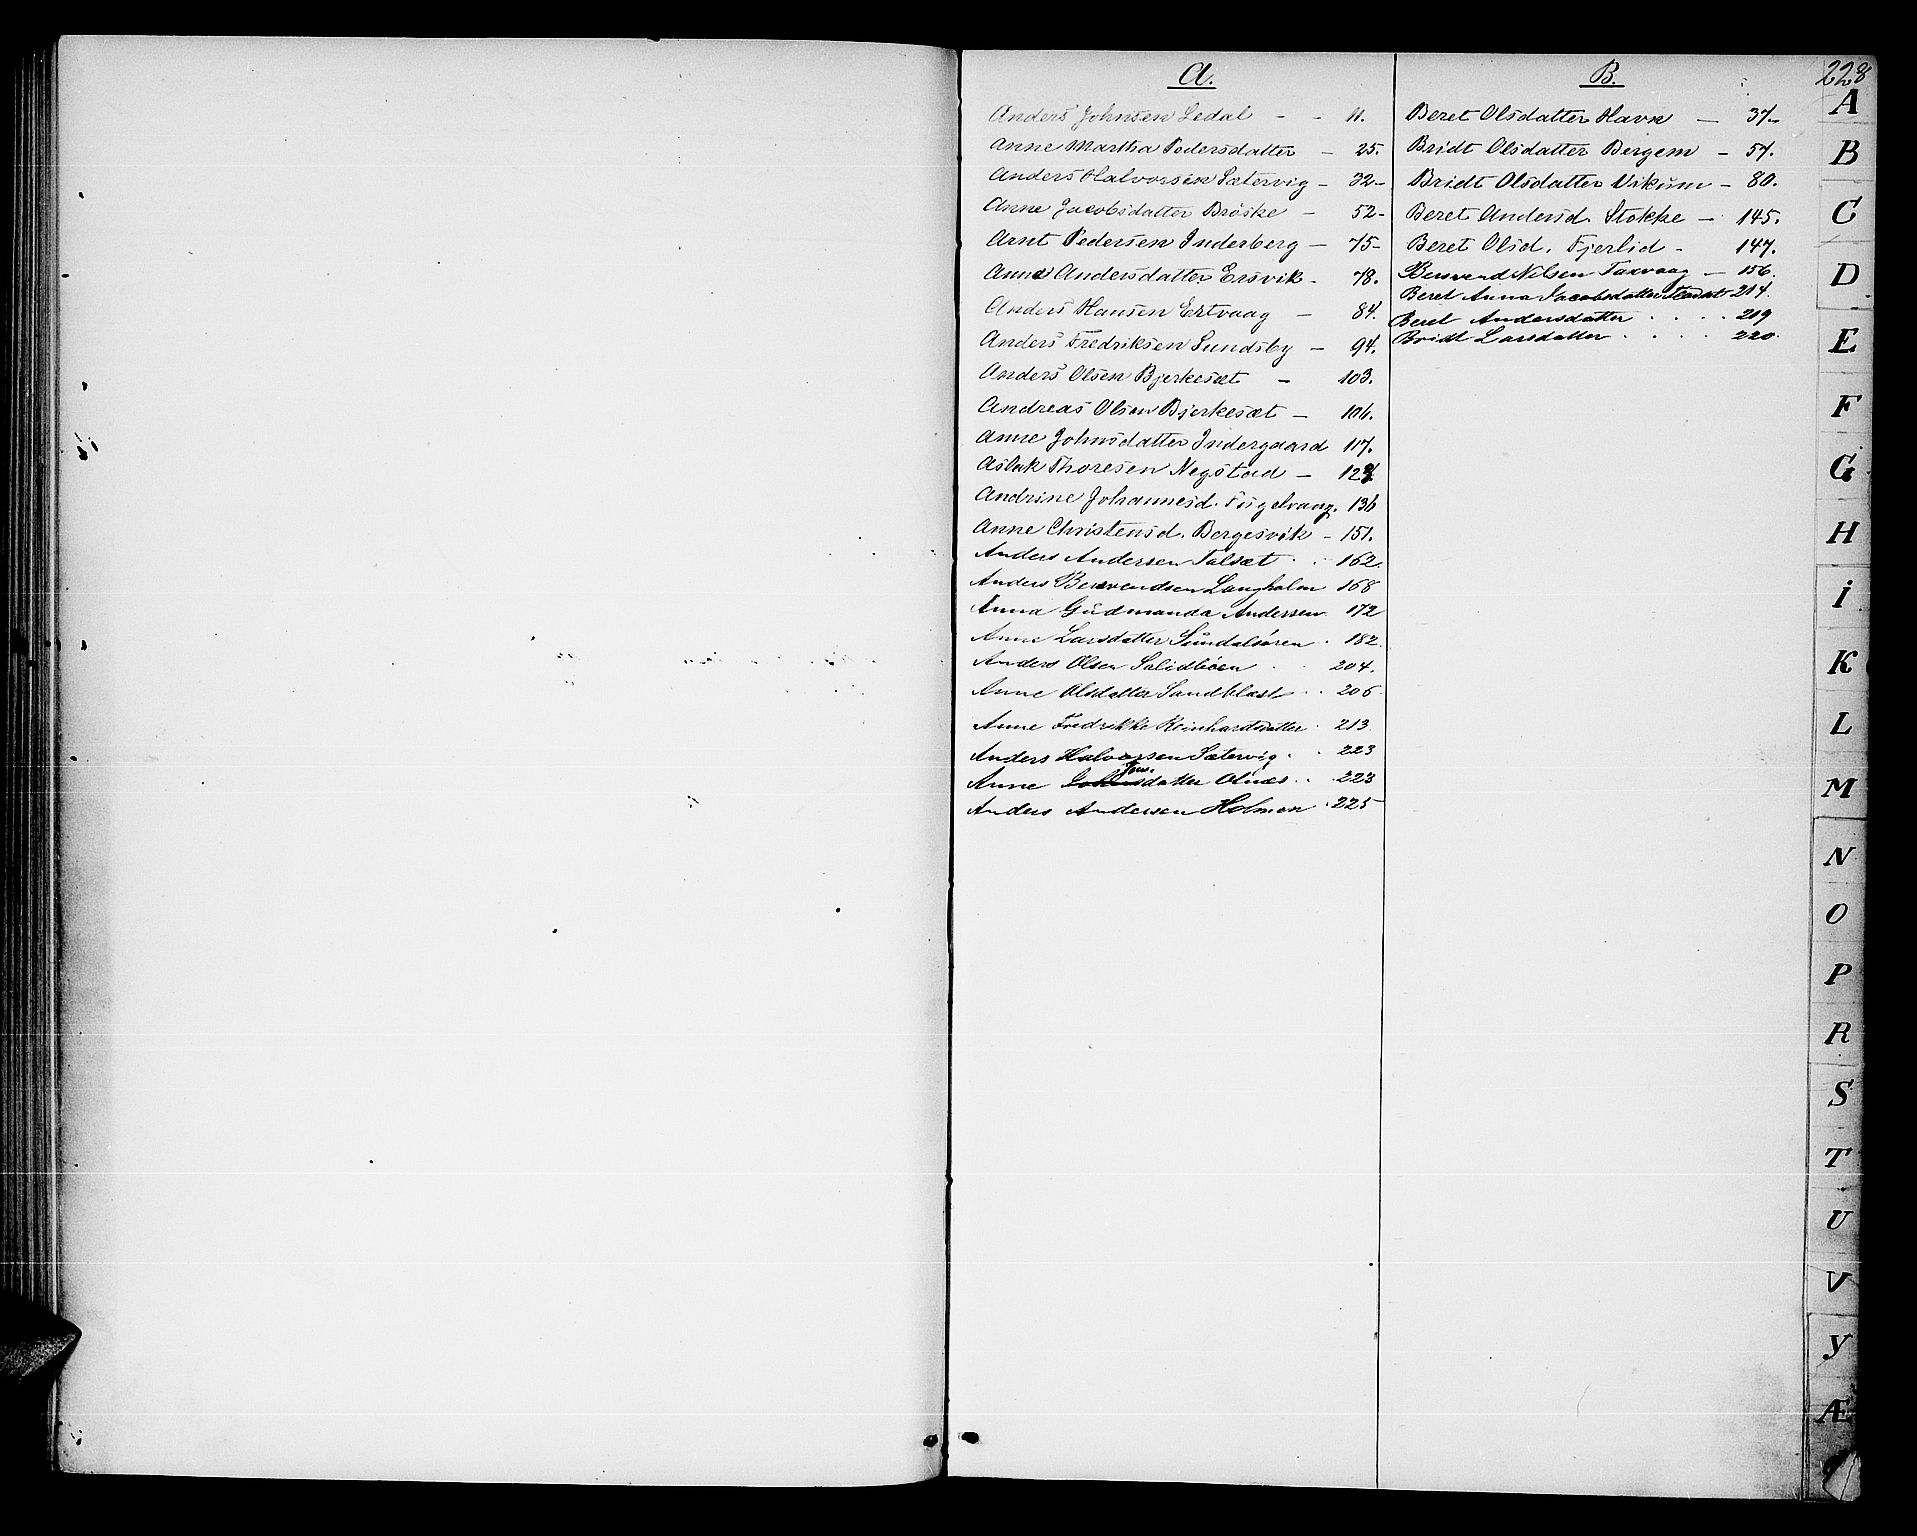 228
A.
Anders Johnsen Ledal - - 11.
Anne Martha Pedersdatter - 25.
Anders Halvorsen Sætervig - 32-
Anne Jacobsdatter Brøske - 52-
Arnt Pedersen Inderberg - 75-
Anne Andersdatter Ersvik - 78.
Anders Hansen Ertvaag - 84.
Anders Fredriksen Sundsby - 94.
Anders Olsen Bjerkesæt - 103.
Andreas Olsen Bjerkesæt - 106.
Anne Johnsdatter Indergaard 117.
Aslak Thoresen Negstad -
Andrine Johannesd. Fugelvaag. 136
Anne Christensd. Bergesvik - 151.
Anders Andersen Talsæt . . 162.
Anders Bernvendsen Langholm 168
Anna Gudmanda Andersen 172
Anne Larsdatter Sundalsøren . 182.
Anders Olsen Solidbøen . . 204.
Anne Olsdatter Sandblast . . 206.
Anne Fredrikke Reinhardsdatter . 213.
Anders Halvorsen Sætervig . . 223
Anne datter Olnæs . . 223
Anders Andersen Holmen . 225
B.
Beret Olsdatter Havn - 37-
Bridt Olsdatter Bergem - 57.
Bridt Olsdatter Vikum - 80.
Beret Andersd. Stokke - 145.
Beret Olsd. Fjerlid - 147.
Bernvend Nilsen Taxvaag - 156.
Beret Anna Jacobsdatter 214.
Beret Andersdatter . . . . 219
Bridt Larsdatter . . . . 220.
A
B
C
D
E
F
G
H
I
K
L
M
N
O
P
R
S
T
U
V
Y
Æ